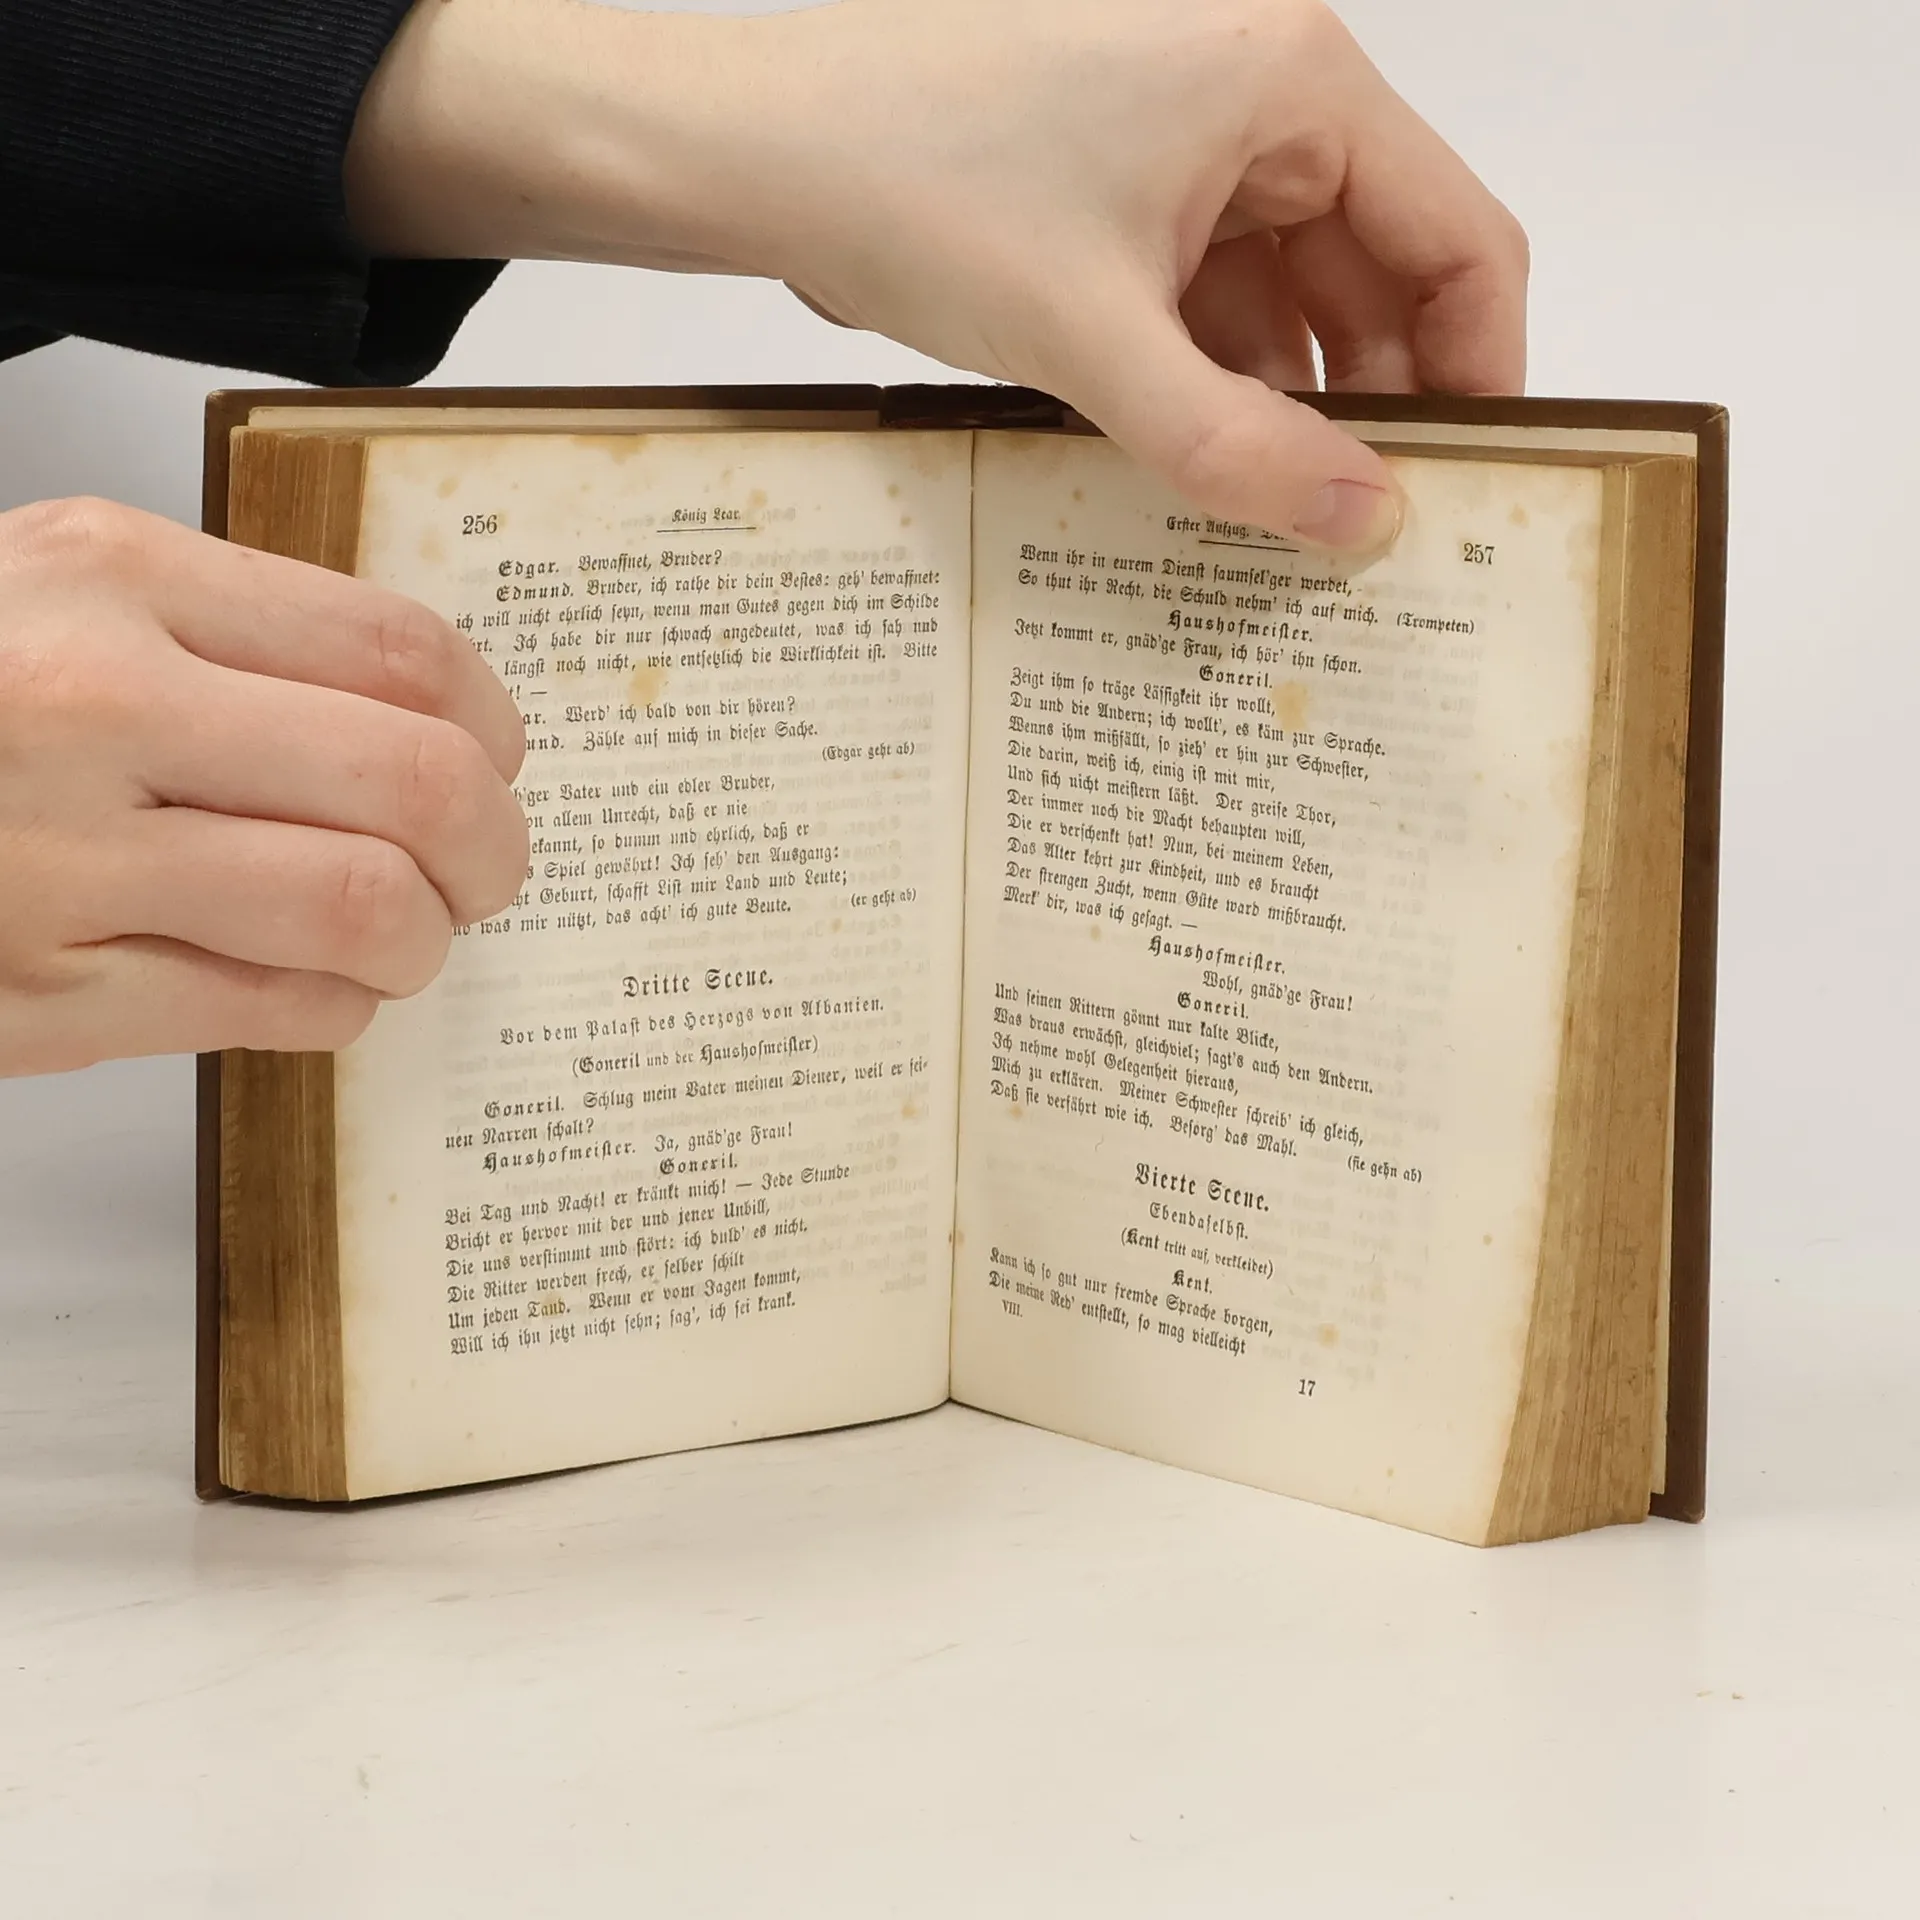 256
König Lear.
Edgar. Bewaffnet, Bruder?
Edmund. Bruder, ich rathe dir dein Bestes: geh' bewaffnet:
ich will nicht ehrlich seyn, wenn man Gutes gegen dich im Schilde
Ich habe dir nur schwach angedeutet, was ich sah und
längst noch nicht, wie entsetzlich die Wirklichkeit ist. Bitte
—
Werd' ich bald von dir hören?
Zähle auf mich in dieser Sache.
(Edgar geht ab)
Vater und ein edler Bruder,
allem Unrecht, daß er nie
so dumm und ehrlich, daß er
Spiel gewährt! Ich seh' den Ausgang:
Geburt, schafft List mir Land und Leute;
was mir nützt, das acht' ich gute Beute. (er geht ab)
Dritte Scene.
Vor dem Palast des Herzogs von Albanien.
(Goneril und der Haushofmeister)
Goneril. Schlug mein Vater meinen Diener, weil er sei-
nen Narren schalt?
Haushofmeister. Ja, gnäd'ge Frau!
Goneril.
Bei Tag und Nacht! er kränkt mich! — Jede Stunde
Bricht er hervor mit der und jener Unbill,
Die uns verstimmt und stört: ich duld' es nicht.
Die Ritter werden frech, er selber schilt
Um jeden Tand. Wenn er vom Jagen kommt,
Will ich ihn jetzt nicht sehn; sag', ich sei krank.
Erster Aufzug.
257
Wenn ihr in eurem Dienst saumsel'ger werdet,
So thut ihr Recht, die Schuld nehm' ich auf mich. (Trompeten)
Haushofmeister.
Jetzt kommt er, gnäd'ge Frau, ich hör' ihn schon.
Goneril.
Zeigt ihm so träge Lässigkeit ihr wollt,
Du und die Andern; ich wollt', es käm zur Sprache.
Wenns ihm mißfällt, so zieh' er hin zur Schwester,
Die darin, weiß ich, einig ist mit mir,
Und sich nicht meistern läßt. Der greise Thor,
Der immer noch die Macht behaupten will,
Die er verschenkt hat! Nun, bei meinem Leben,
Das Alter kehrt zur Kindheit, und es braucht
Der strengen Zucht, wenn Güte ward mißbraucht.
Merk' dir, was ich gesagt. —
Haushofmeister.
Wohl, gnäd'ge Frau!
Goneril.
Und seinen Rittern gönnt nur kalte Blicke,
Was draus erwächst, gleichviel; sagt's auch den Andern.
Ich nehme wohl Gelegenheit hieraus,
Mich zu erklären. Meiner Schwester schreib' ich gleich,
Daß sie verfährt wie ich. Besorg' das Mahl.
(sie gehn ab)
Vierte Scene.
Ebendaselbst.
(Kent tritt auf, verkleidet)
Kent.
Kann ich so gut nur fremde Sprache borgen,
Die meine Red' entstellt, so mag vielleicht
VIII.
17